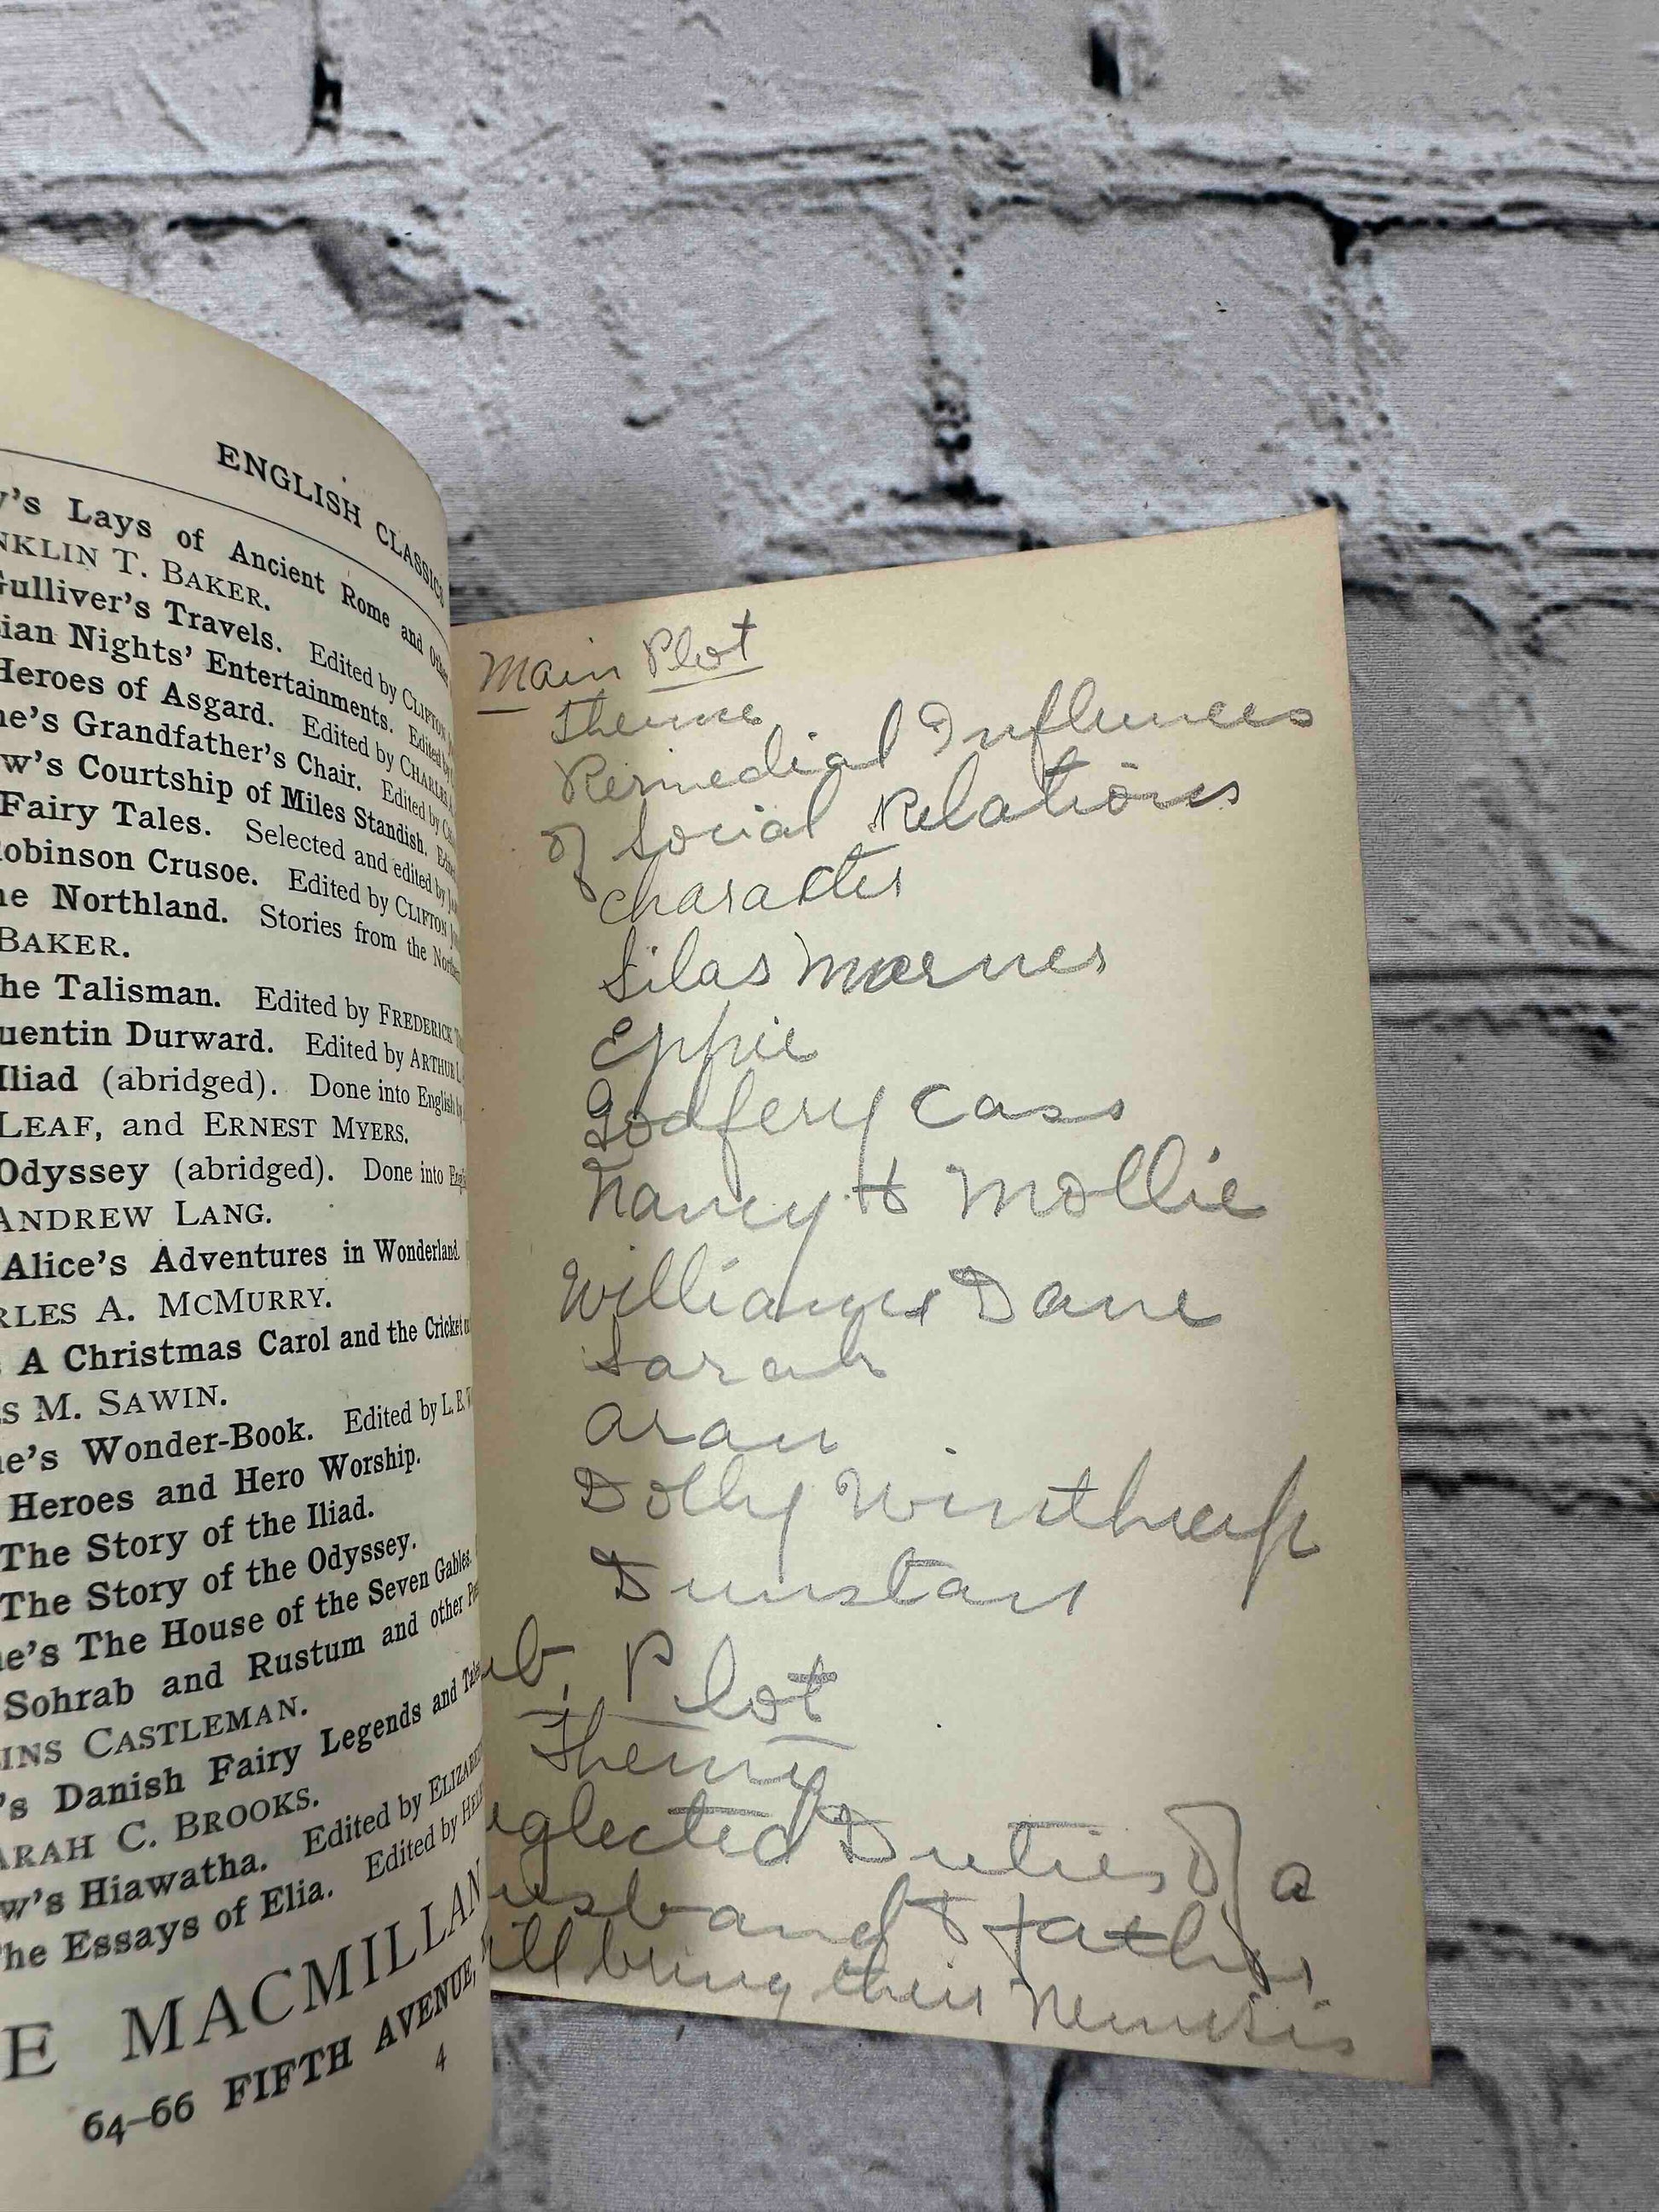 ENGLISH CLASSICS
y's Lays of Ancient Rome and Othe
NKLIN T. BAKER.
Gulliver's Travels. Edited by CLIFTON
ian Nights' Entertainments. Edited by
Heroes of Asgard. Edited by CHARLES
ne's Grandfather's Chair. Edited by
w's Courtship of Miles Standish.
Fairy Tales. Selected and edited by
Robinson Crusoe. Edited by CLIFTON
he Northland. Stories from the Northern
BAKER.
he Talisman. Edited by FREDERICK
uentin Durward. Edited by ARTHUR L
Iliad (abridged). Done into English by
LEAF, and ERNEST MYERS.
Odyssey (abridged). Done into Engl
ANDREW LANG.
Alice's Adventures in Wonderland.
RLES A. MCMURRY.
A Christmas Carol and the Cricket
S M. SAWIN.
ne's Wonder-Book. Edited by L. E. W
Heroes and Hero Worship.
The Story of the Iliad.
The Story of the Odyssey.
ne's The House of the Seven Gables.
Sohrab and Rustum and other
INS CASTLEMAN.
's Danish Fairy Legends and Tales
ARAH C. BROOKS.
w's Hiawatha. Edited by ELIZABE
The Essays of Elia. Edited by HEL
E MACMILLAN
64–66 FIFTH AVENUE,
4
Main Plot
Theme
Remedial Influences
of Social Relations
Character
Silas Marner
Eppie
Godfery Cass
Nancy & Mollie
William Dane
Sarah
Aran
Dolly Winthrop
Dunstan
ub. Plot
Theme
eglected Duties of a
usband & Father
ill bring their Nemisis